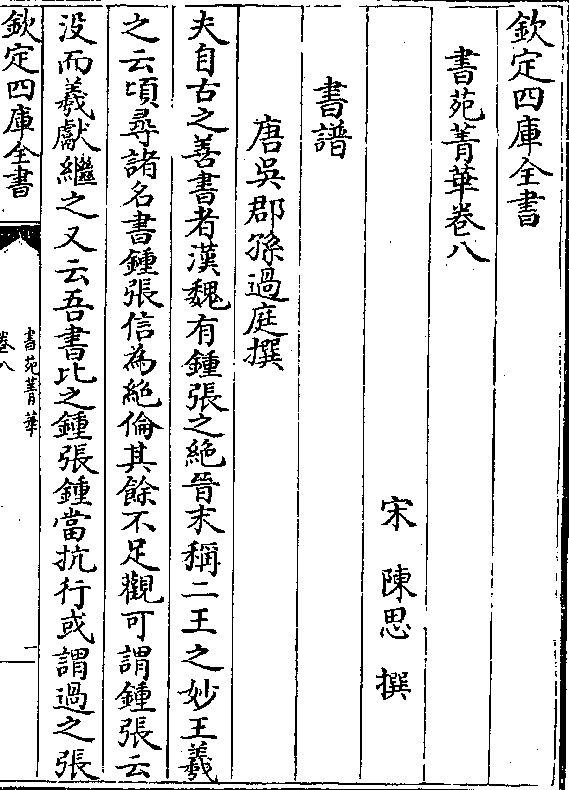 欽定四庫全書
書苑菁華卷八
宋 陳思 撰
書譜
唐吳郡孫過庭撰
夫自古之善書者漢魏有鍾張之絶晉末稱二王之妙王羲
之云頃尋諸名書鍾張信為絶倫其餘不足觀可謂鍾張云
没而羲獻繼之又云吾書比之鍾張鍾當抗行或謂過之張
欽定四庫全書
書苑菁華
卷八
一